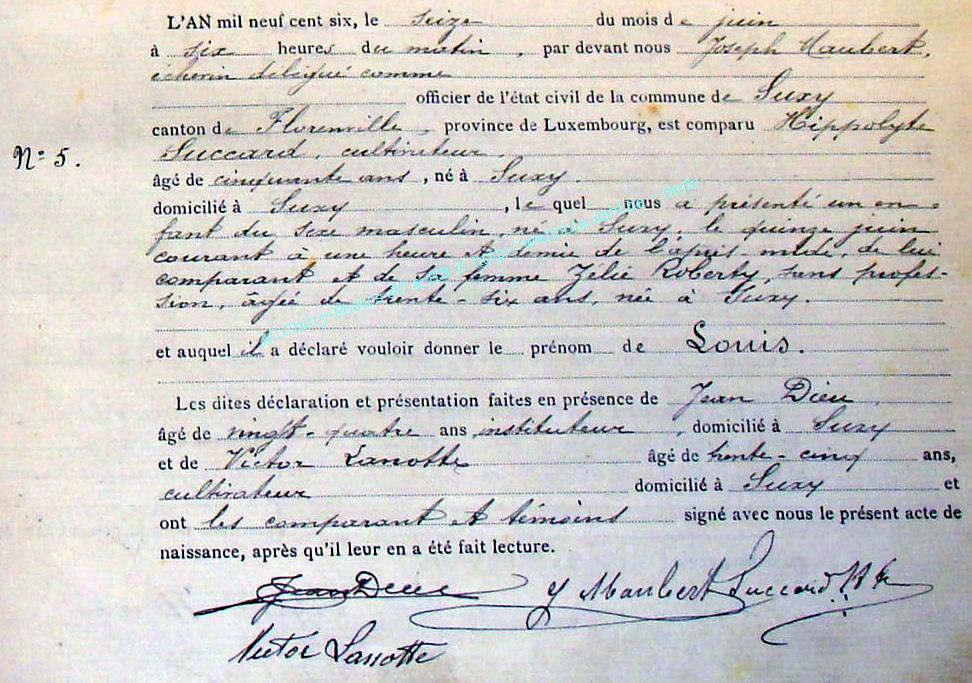 L'AN mil neuf cent six, le seize du mois de juin
à six heures du matin, par devant nous Joseph Maubert,
échevin délégué comme
officier de l'état civil de la commune de Suxy
canton de Florenville, province de Luxembourg, est comparu Hippolyte
N° 5.
Succard, cultivateur,
âgé de cinquante ans, né à Suxy.
domicilié à Suxy, le quel nous a présenté un en-
fant du sexe masculin, né à Suxy, le quinze juin
courant à une heure et demie de l'après midi, de lui
comparant et de sa femme Zélie Roberty, sans profes-
sion, agée de trente-six ans, née à Suxy.
et auquel il a déclaré vouloir donner le prénom de Louis.
Les dites déclaration et présentation faites en présence de Jean Dieu,
âgé de vingt-quatre ans, instituteur, domicilié à Suxy
et de Victor Lanotte âgé de trente-cinq ans,
cultivateur domicilié à Suxy et
ont les comparant et témoins signé avec nous le présent acte de
naissance, après qu'il leur en a été fait lecture.
Jean Dieu J Maubert Succard H
Victor Lanotte